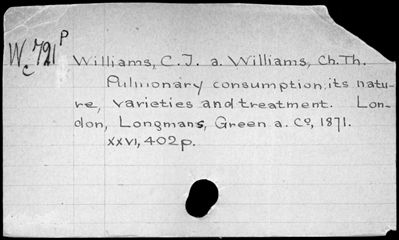 Wc 721 P
Williams, C.J. a. Williams, Ch.Th.
Pulmonary consumption; its natu-
re, varieties and treatment. Lon-
don, Longmans, Green a. Co, 1871.
XXVI, 402 p.